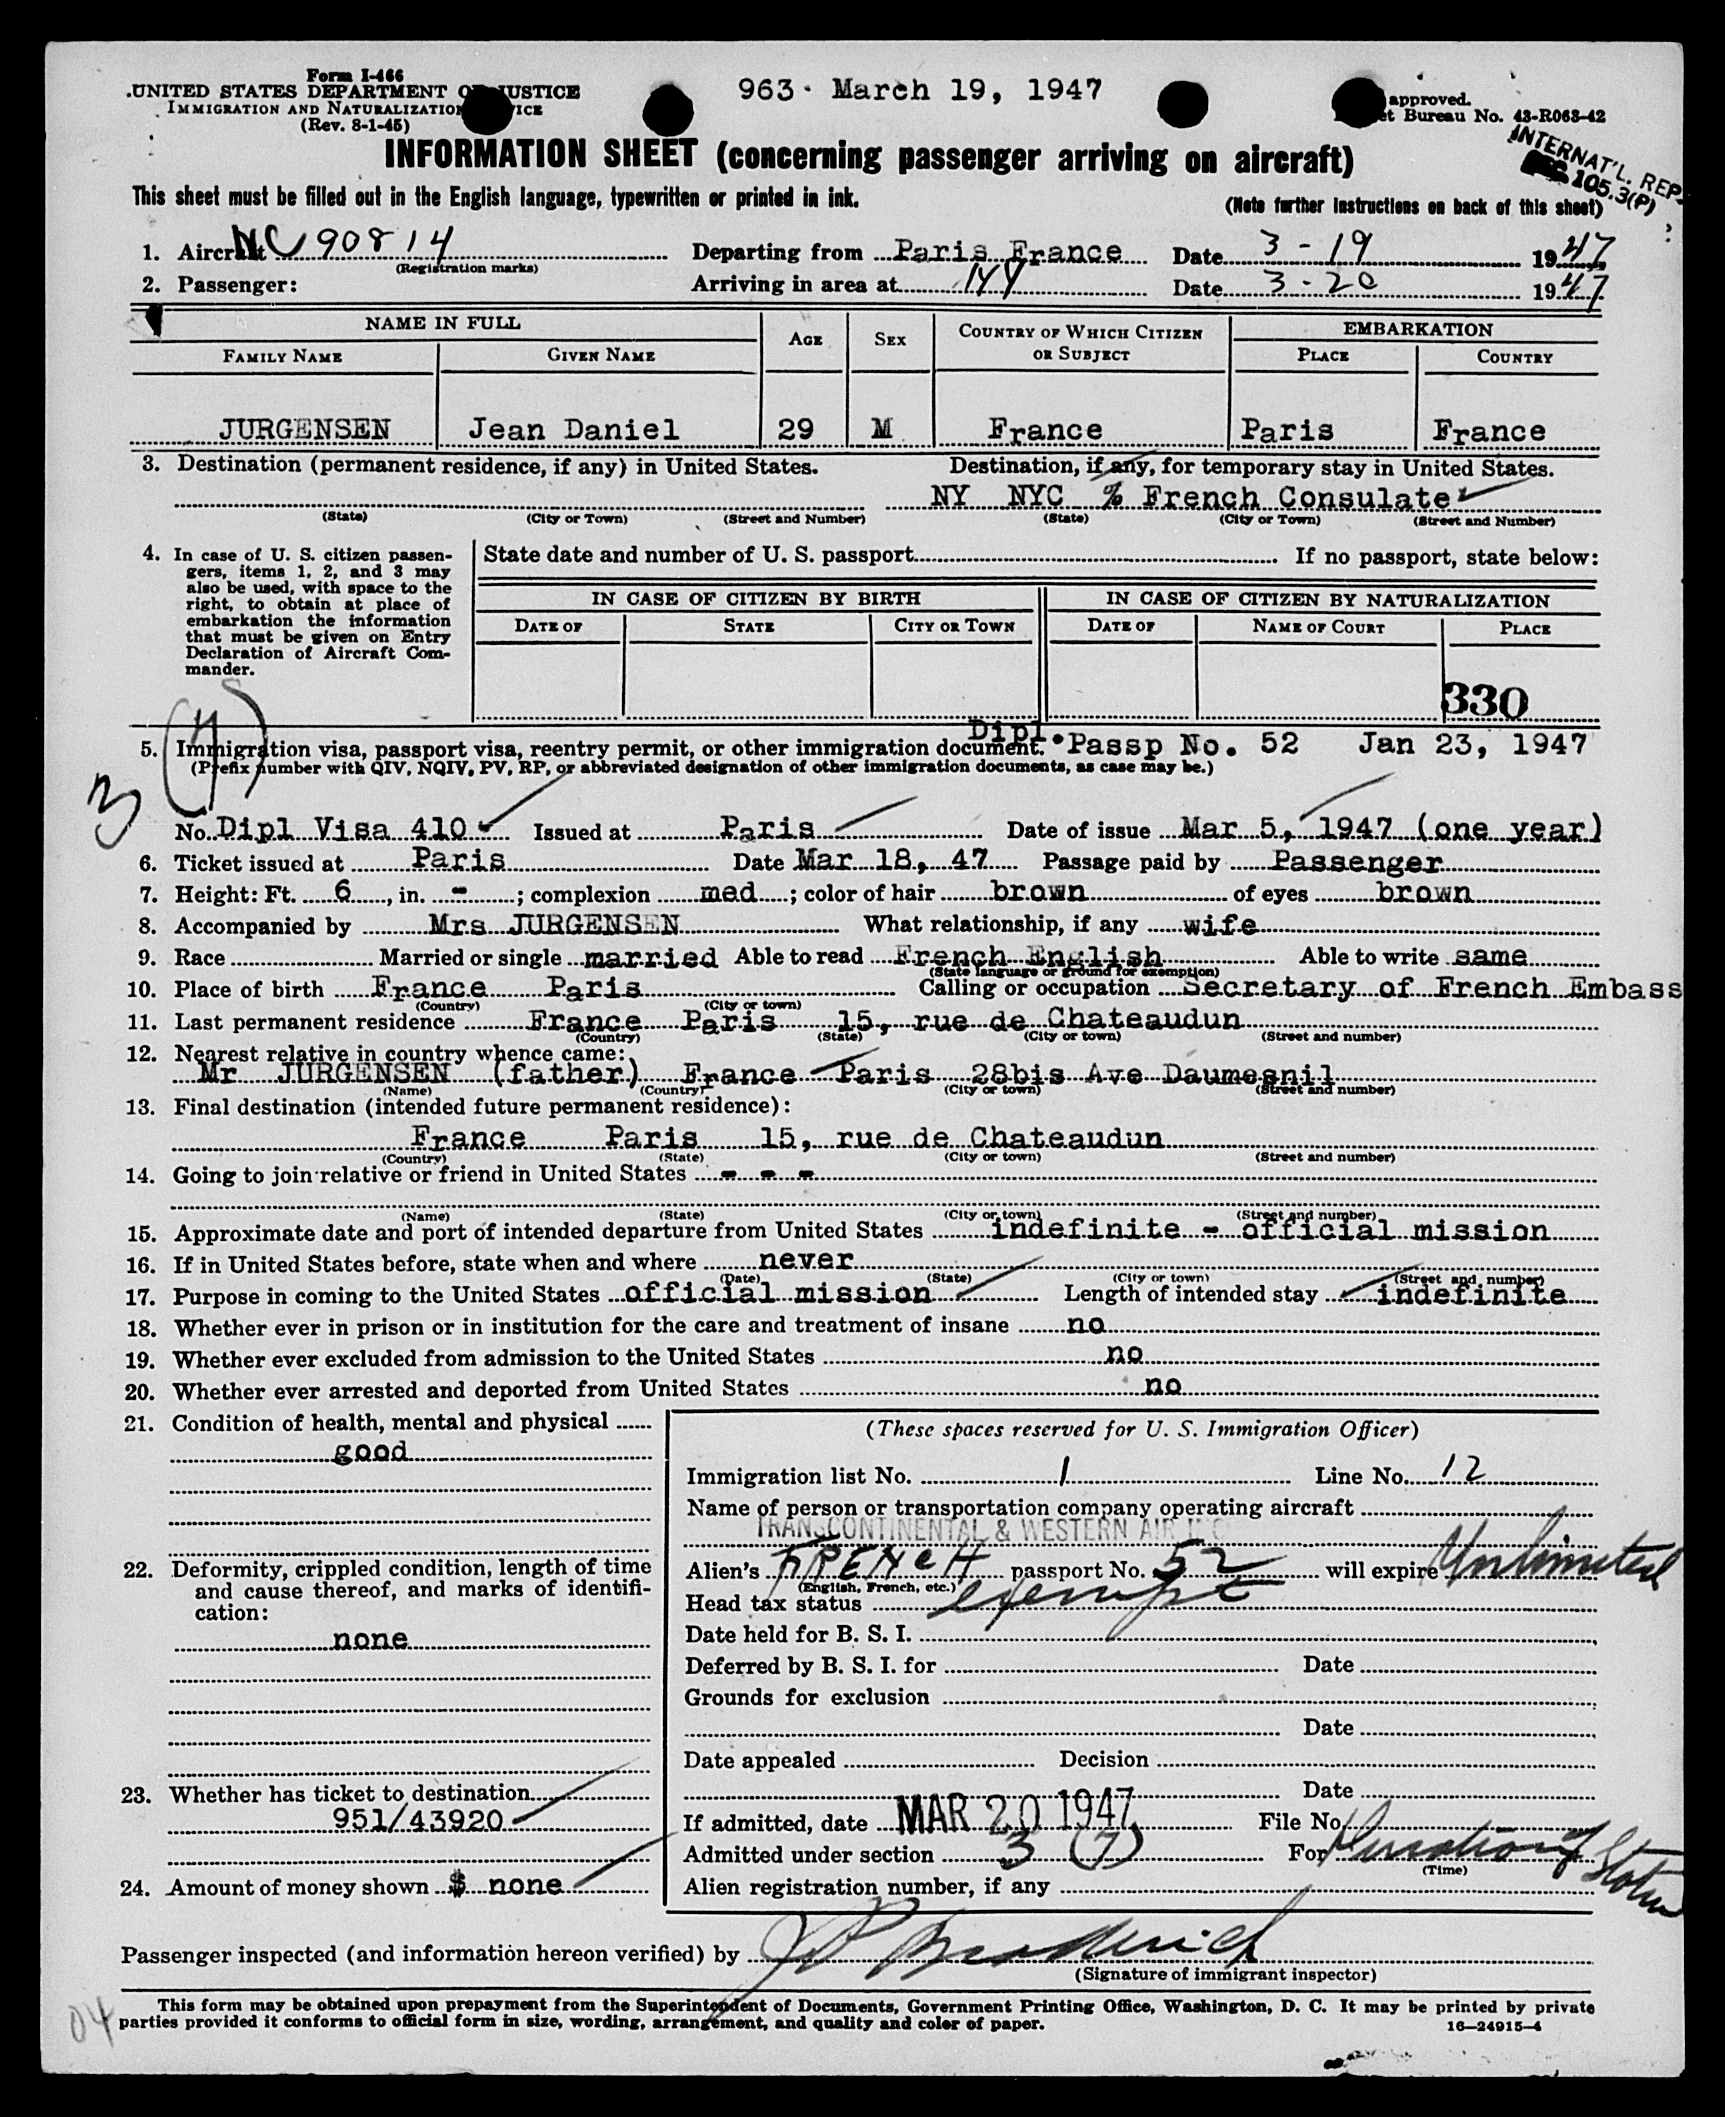 Form I-466
UNITED STATES DEPARTMENT OF JUSTICE
IMMIGRATION AND NATURALIZATION SERVICE
(Rev. 8-1-45)
963 March 19, 1947
approved.
Bureau No. 43-R063-42
INTERNAT'L. REP.
105.3(P)
INFORMATION SHEET (concerning passenger arriving on aircraft)
This sheet must be filled out in the English language, typewritten or printed in ink.
(Note further instructions on back of this sheet)
1. Aircraft NC 90814 Departing from Paris France Date 3-19 1947
(Registration marks)
2. Passenger: Arriving in area at NY Date 3-20 1947
NAME IN FULL AGE SEX COUNTRY OF WHICH CITIZEN OR SUBJECT EMBARKATION
FAMILY NAME GIVEN NAME PLACE COUNTRY
JURGENSEN Jean Daniel 29 M France Paris France
3. Destination (permanent residence, if any) in United States. Destination, if any, for temporary stay in United States.
NY NYC % French Consulate
(State) (City or Town) (Street and Number) (State) (City or Town) (Street and Number)
4. In case of U. S. citizen passengers, items 1, 2, and 3 may also be used, with space to the right, to obtain at place of embarkation the information that must be given on Entry Declaration of Aircraft Commander.
State date and number of U. S. passport If no passport, state below:
IN CASE OF CITIZEN BY BIRTH IN CASE OF CITIZEN BY NATURALIZATION
DATE OF STATE CITY OR TOWN DATE OF NAME OF COURT PLACE
330
3 (7)
5. Immigration visa, passport visa, reentry permit, or other immigration document. Dipl. Passp No. 52 Jan 23, 1947
(Prefix number with QIV, NQIV, PV, RP, or abbreviated designation of other immigration documents, as case may be.)
No. Dipl Visa 410 Issued at Paris Date of issue Mar 5, 1947 (one year)
6. Ticket issued at Paris Date Mar 18, 47 Passage paid by Passenger
7. Height: Ft. 6, in. -; complexion med; color of hair brown of eyes brown
8. Accompanied by Mrs JURGENSEN What relationship, if any wife
9. Race Married or single married Able to read French English Able to write same
(State language or ground for exemption)
10. Place of birth France Paris Calling or occupation Secretary of French Embass
(Country) (City or town)
11. Last permanent residence France Paris 15, rue de Chateaudun
(Country) (State) (City or town) (Street and number)
12. Nearest relative in country whence came:
Mr JURGENSEN (father) France Paris 28bis Ave Daumesnil
(Name) (Country) (City or town) (Street and number)
13. Final destination (intended future permanent residence):
France Paris 15, rue de Chateaudun
(Country) (State) (City or town) (Street and number)
14. Going to join relative or friend in United States - - -
(Name) (State) (City or town) (Street and number)
15. Approximate date and port of intended departure from United States indefinite - official mission
16. If in United States before, state when and where never
(Date) (State) (City or town) (Street and number)
17. Purpose in coming to the United States official mission Length of intended stay indefinite
18. Whether ever in prison or in institution for the care and treatment of insane no
19. Whether ever excluded from admission to the United States no
20. Whether ever arrested and deported from United States no
21. Condition of health, mental and physical
good
22. Deformity, crippled condition, length of time and cause thereof, and marks of identification:
none
23. Whether has ticket to destination
951/43920
24. Amount of money shown $ none
(These spaces reserved for U. S. Immigration Officer)
Immigration list No. 1 Line No. 12
Name of person or transportation company operating aircraft
TRANSCONTINENTAL & WESTERN AIR INC
Alien's FRENCH passport No. 52 will expire Unlimited
(English, French, etc.)
Head tax status exempt
Date held for B. S. I.
Deferred by B. S. I. for Date
Grounds for exclusion
Date
Date appealed Decision
Date
If admitted, date MAR 20 1947 File No.
Admitted under section 3 (7) For Duration of Status
(Time)
Alien registration number, if any
Passenger inspected (and information hereon verified) by J P Broderick
(Signature of immigrant inspector)
This form may be obtained upon prepayment from the Superintendent of Documents, Government Printing Office, Washington, D. C. It may be printed by private
parties provided it conforms to official form in size, wording, arrangement, and quality and color of paper.
16—24915-4
04